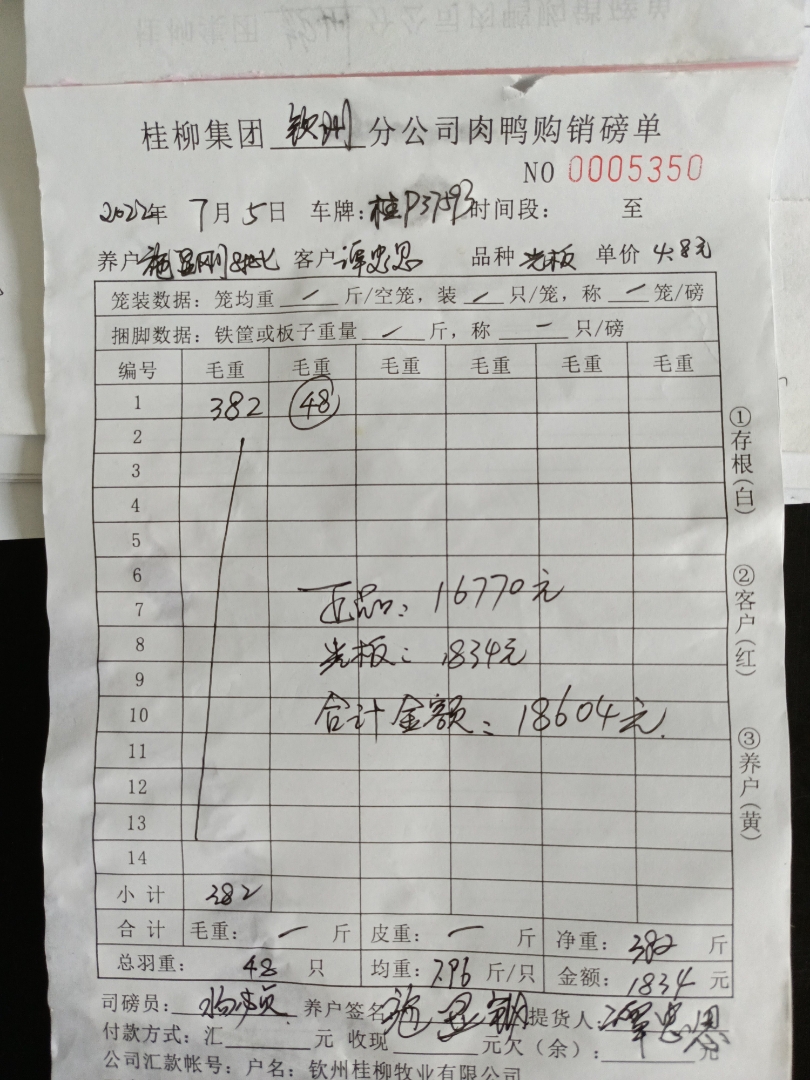 桂柳集团 钦州 分公司肉鸭购销磅单
NO 0005350
2022年 7月5日 车牌：桂P37593 时间段： 至
养户 施显刚 客户 谭忠恩 品种 光板 单价 4.8元
笼装数据：笼均重 / 斤/空笼，装 / 只/笼，称 / 笼/磅
捆脚数据：铁筐或板子重量 / 斤，称 — 只/磅
编号 毛重 毛重 毛重 毛重 毛重 毛重
1 382 48
2
3
4
5
6
7
8
9
10
11
12
13
14
正品：16770元
光板：1834元
合计金额：18604元
小计 382
合计 毛重：— 斤 皮重：— 斤 净重：382 斤
总羽重：48 只 均重：7.96 斤/只 金额：1834 元
司磅员： 养户签名 施显刚 提货人：谭忠恩
付款方式：汇 元 收现 元欠（余）： 元
公司汇款帐号：户名：钦州桂柳牧业有限公司
①存根（白）
②客户（红）
③养户（黄）